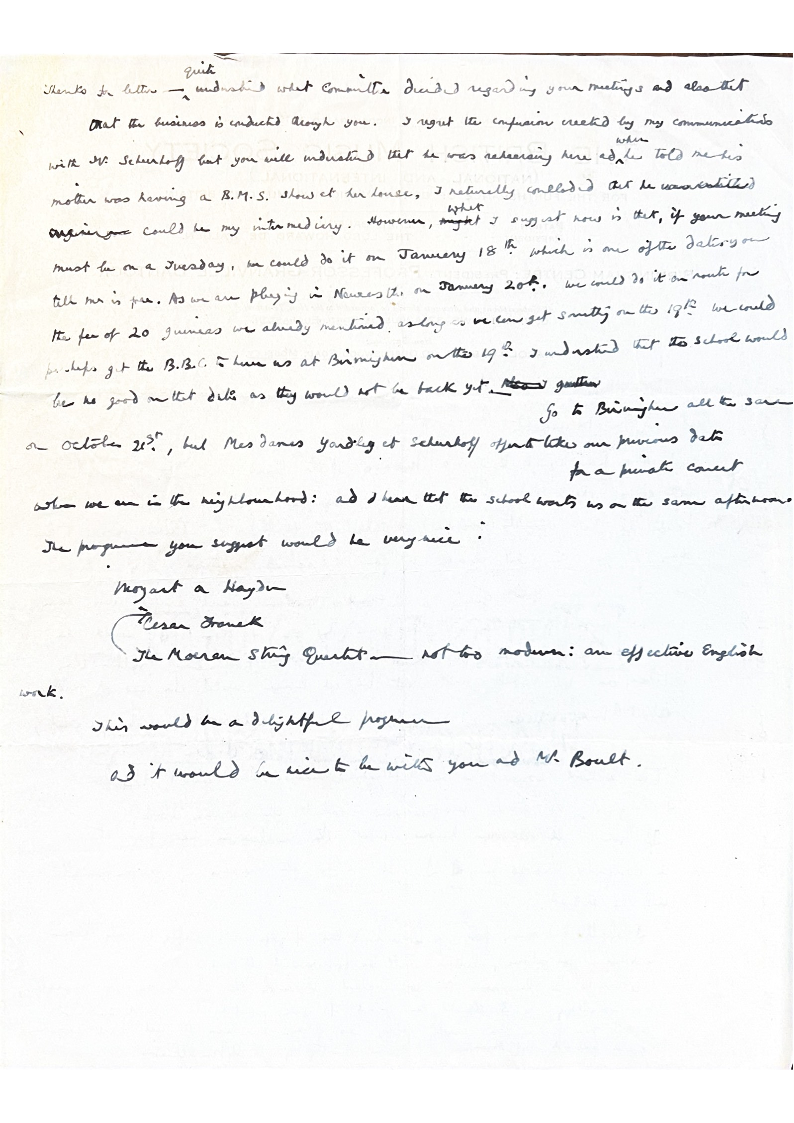 Thanks for letter — quite understand what Committee decided regarding your meetings and also that
that the business is conducted through you. I regret the confusion created by my communications
with Mr. Scheurhoff but you will understand that he was rehearsing here and, when he told me his
mother was having a B.M.S. show at her house, I naturally concluded that he was entitled
could be my intermediary. However, might what I suggest now is that, if your meeting
must be on a Tuesday, we could do it on January 18th which is one of the dates you
tell me is free. As we are playing in Newcastle on January 20th. we could do it en route for
the fee of 20 guineas we already mentioned, as long as we can get something on the 19th. We could
perhaps get the B.B.C. to have us at Birmingham on the 19th. I understand that the school would
be no good on that date as they would not be back yet.
Go to Birmingham all the same
on October 21st, but Mesdames Yardley et Scheurhoff offer to take our previous date
for a private concert
when we are in the neighbourhood: and I hear that the school wants us on the same afternoon.
The programme you suggest would be very nice:
Mozart or Haydn
Cesar Franck
The Moeran String Quartet — not too modern: an effective English
work.
This would be a delightful programme
and it would be nice to be with you and Mr. Boult.